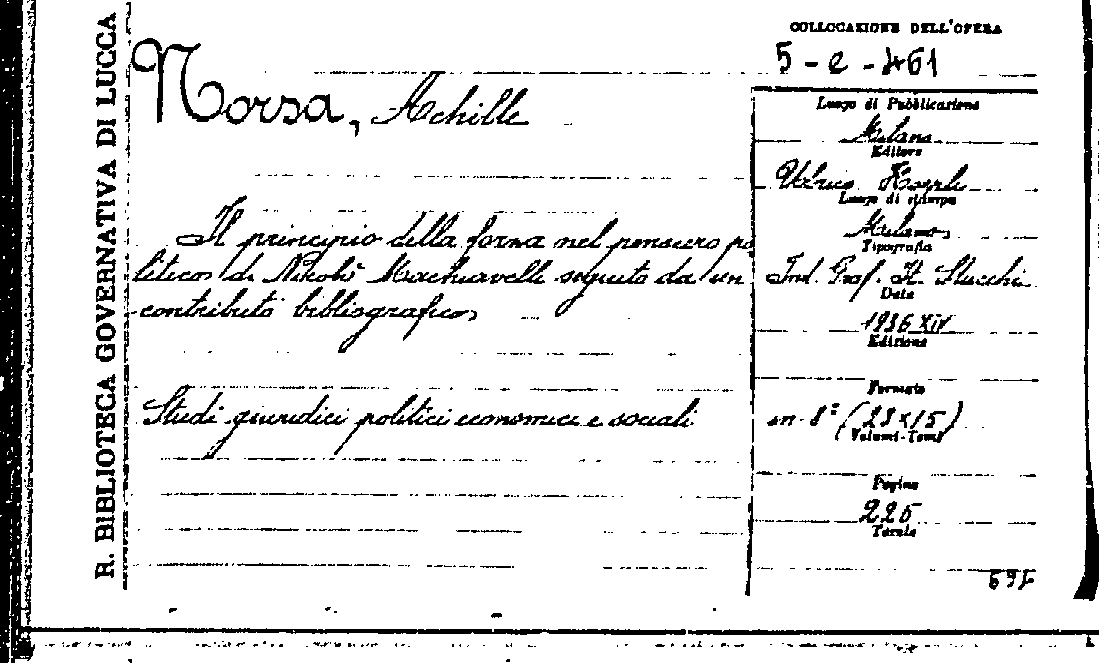 R. BIBLIOTECA GOVERNATIVA DI LUCCA
Norsa, Achille
Il principio della forza nel pensiero po
litico di Nicolò Machiavelli seguito da un
contributo bibliografico
Studi giuridici politici economici e sociali
COLLOCAZIONE DELL'OPERA
5-e-461
Luogo di Pubblicazione
Milano
Editore
Ulrico Hoepli
Luogo di stampa
Milano
Tipografia
Ind. Graf. A. Stucchi
Data
1936 XIV
Edizione
Formato
in 8° (23x15)
Volumi-Tomi
Pagine
225
Tavole